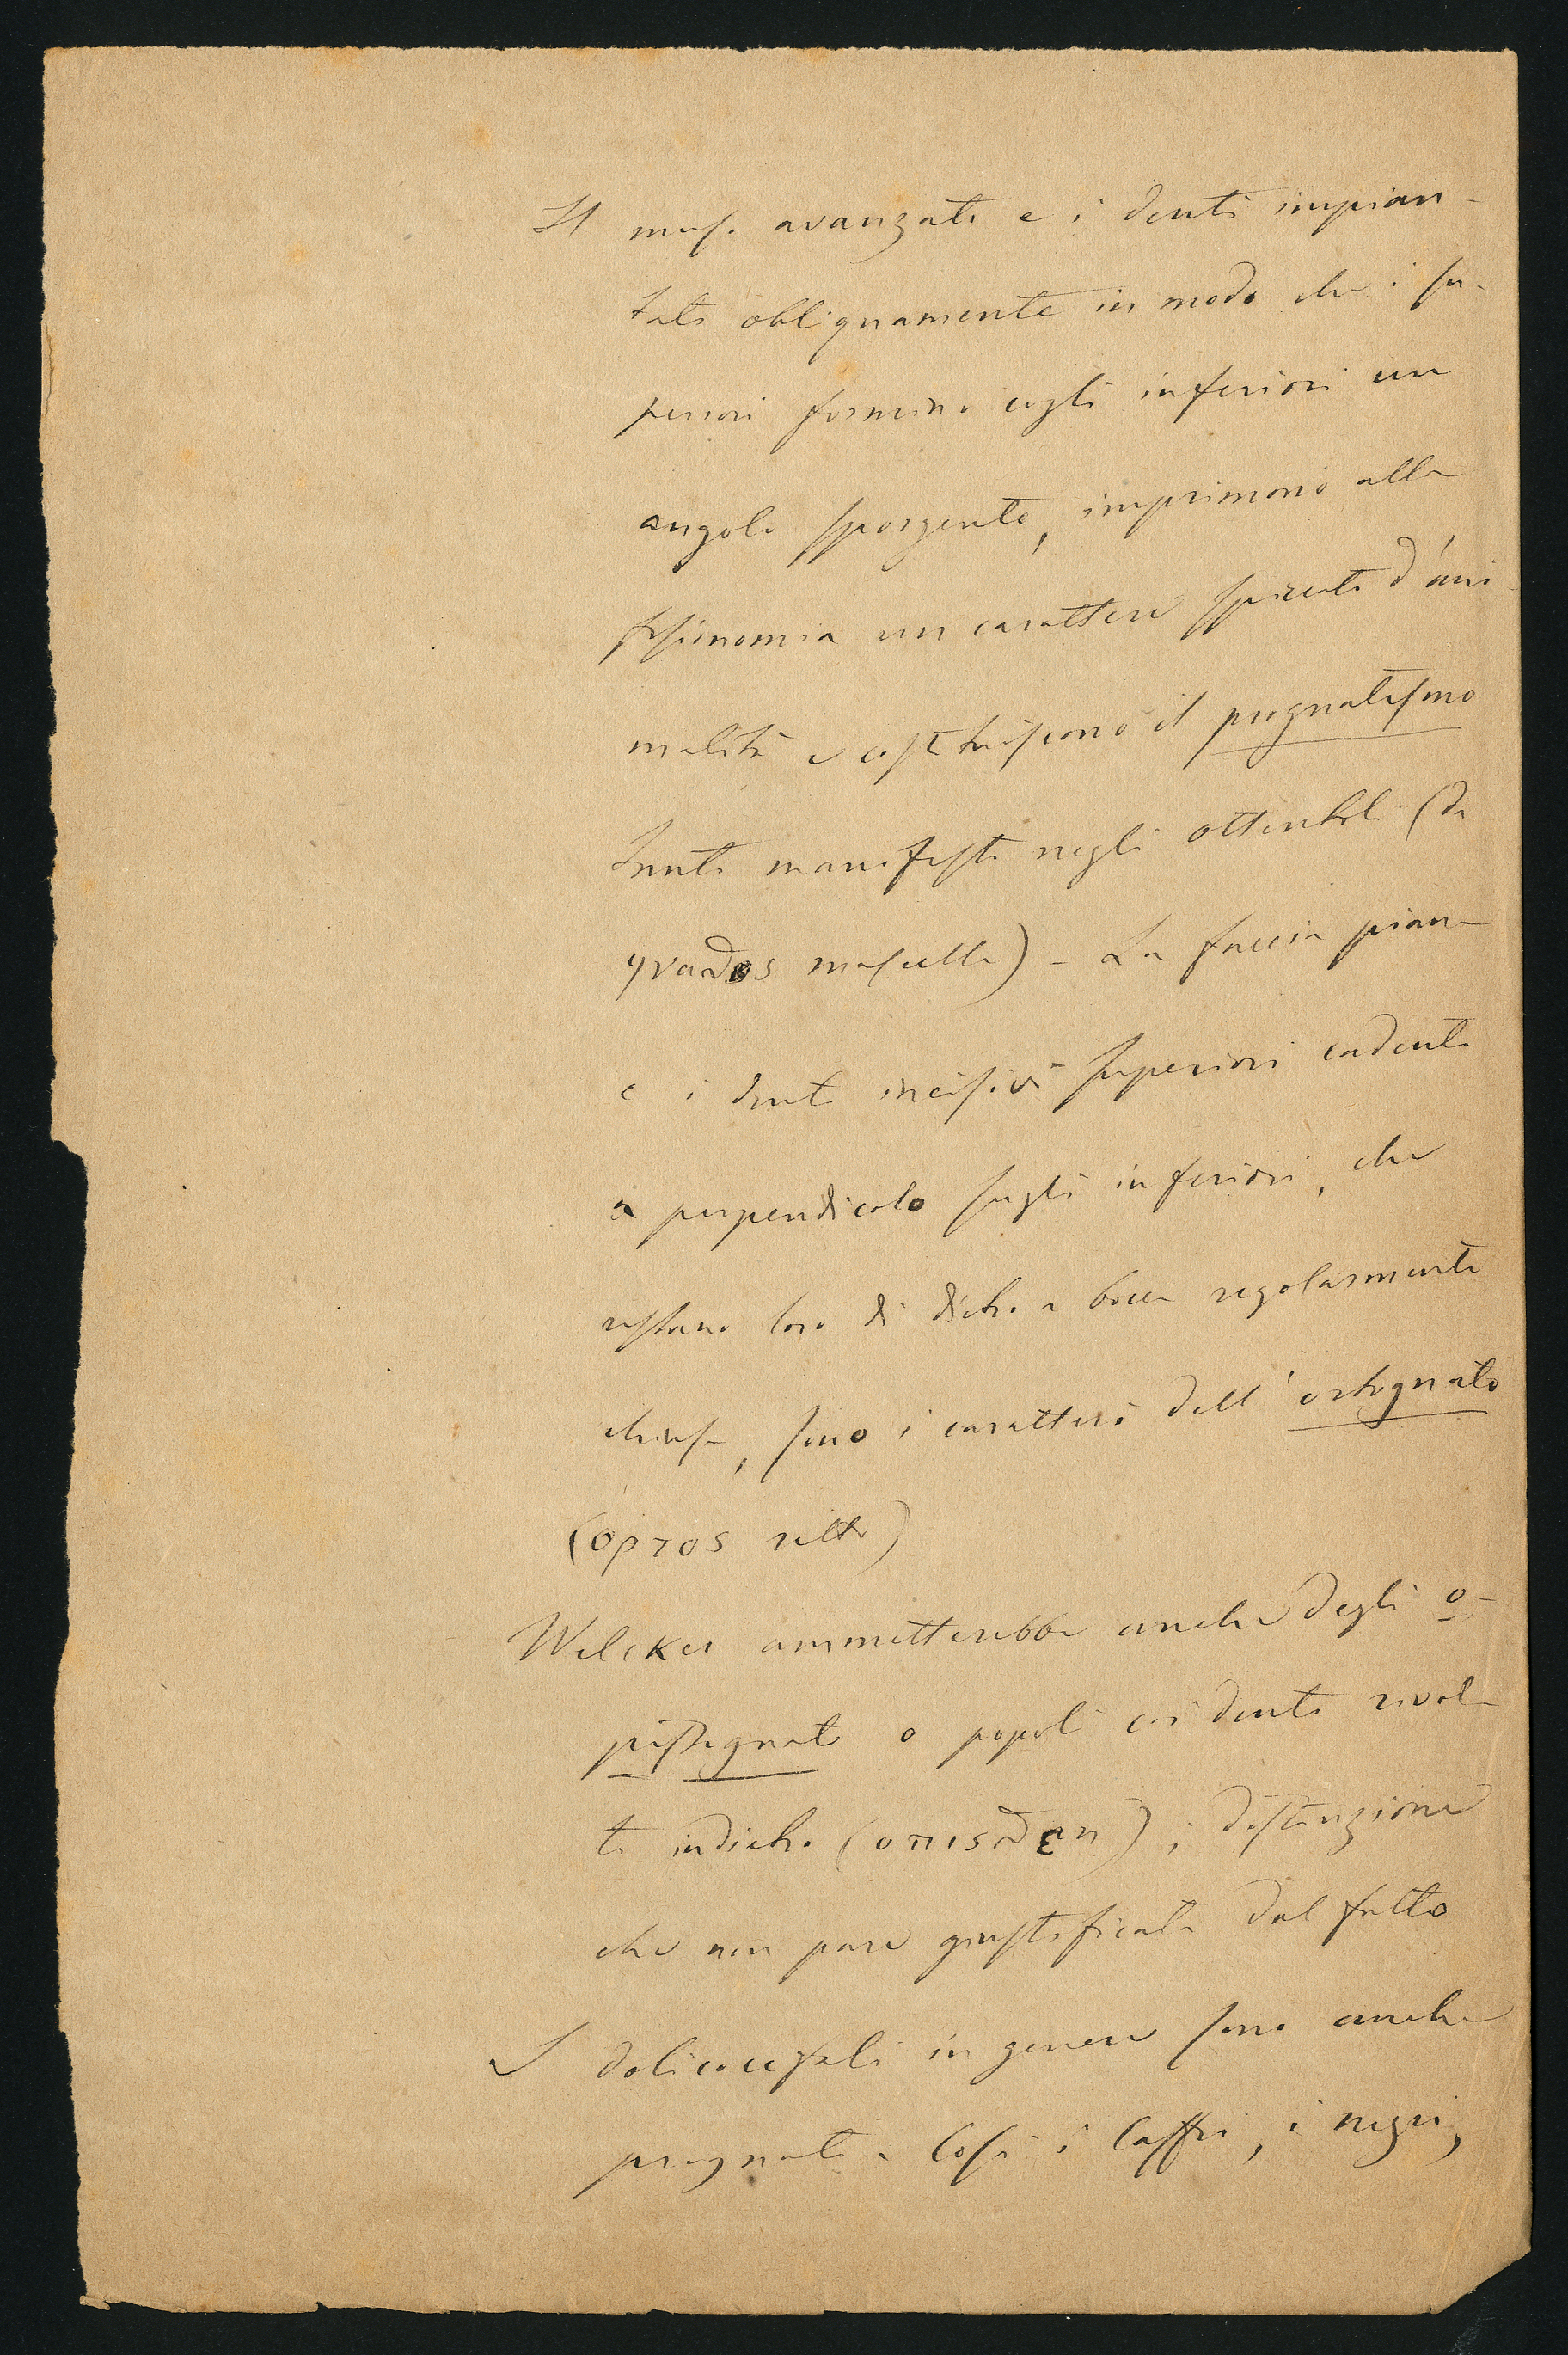 Il muso avanzato e i denti impian-
tati obliquamente in modo che i su-
periori formino cogli inferiori un
angolo sporgente, imprimono alla
fisionomia un carattere spiccato d'ani-
malità e costituiscono il prognatismo
tanto manifesto negli ottentoti (da
γναϑος mascella) - La faccia piana
e i denti incisivi superiori cadenti
a perpendicolo sugli inferiori, che
restano loro di dietro a bocca regolarmente
chiusa, sono i caratteri dell'ortognato
(ορτος retto)
Welcker ammetterebbe anche degli o-
pistognati o popoli coi denti rivol-
ti indietro (οπισϑεν); distinzione
che non pare giustificata dal fatto
I dolicocefali in genere sono anche
prognati. Così i Caffri, i negri,